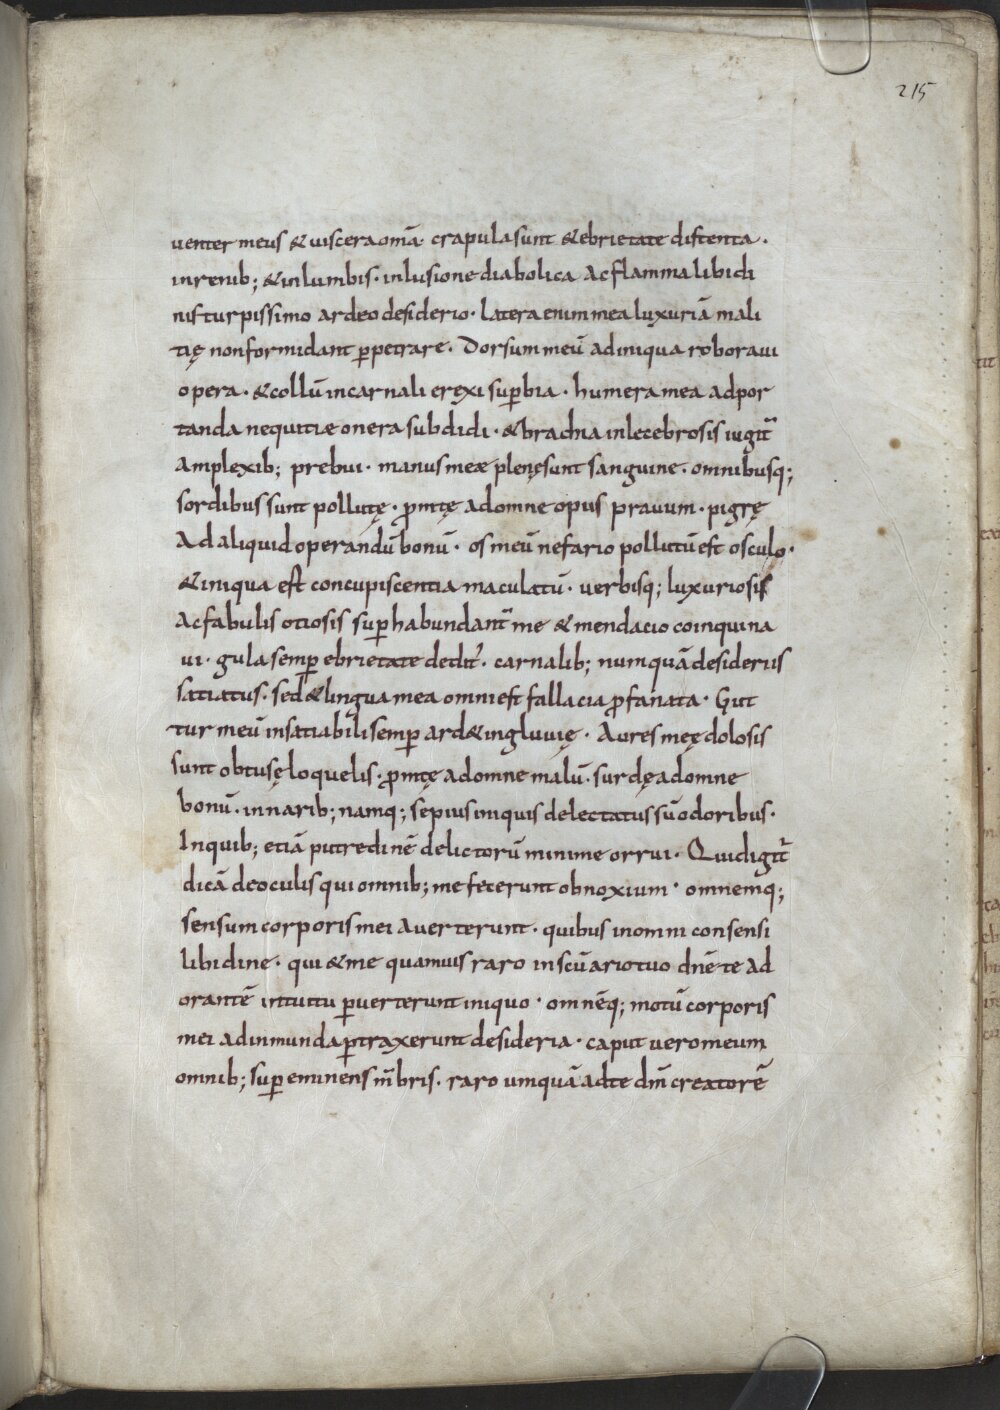 215
uenter meus & uiscera omā· crapula sunt & ebrietate distenta·
in renib; & in lumbis· inlusione diabolica ac flamma libidi
nis turpissimo ardeo desiderio· latera enim mea luxuriā mali
tię non formidant ꝑpetrare· Dorsum meū ad iniqua roboraui
opera· & collū in carnali erexi suꝑbia· humera mea ad por
tanda nequitiæ onera subdidi· & brachia inlecebrosis iugit̄
amplexib; prebui· manus meæ plenę sunt sanguine· omnibusq;
sordibus sunt pollutę· ꝓmtę ad omne opus prauum· pigrę
Ad aliquid operandū bonū· os meū nefario pollutū est osculo·
& iniqua est concupiscentia maculatū· uerbisq; luxuriosis
ac fabulis otiosis suꝑhabundant̄ me & mendacio coinquina
ui· gula semꝑ ebrietate dedit̄· carnalib; numquā desideriis
satiatus· sed & lingua mea omni est fallacia ꝓfanata· Gut
tur meū insatiabili semꝑ ard& ingluuię· Aures meę dolosis
sunt obtusę loquelis· ꝓmtę ad omne malū· surdę ad omne
bonū· in narib; namq; sepius iniquis delectatus sū odoribus·
In quib; etiā putredinē delictorū minime orrui· Quid igit̄
dicā de oculis qui omnib; me fecerunt obnoxium· omnemq;
sensum corporis mei auerterunt· quibus in omni consensi
libidine· qui & me quamuis raro in scūario tuo dnē te ad
orantē intuitu ꝑuerterunt iniquo· omnēq; motū corporis
mei ad inmunda ꝑtraxerunt desideria· caput uero meum
omnib; suꝑeminens m̄bris· raro umquā ad te dm̄ creatorē